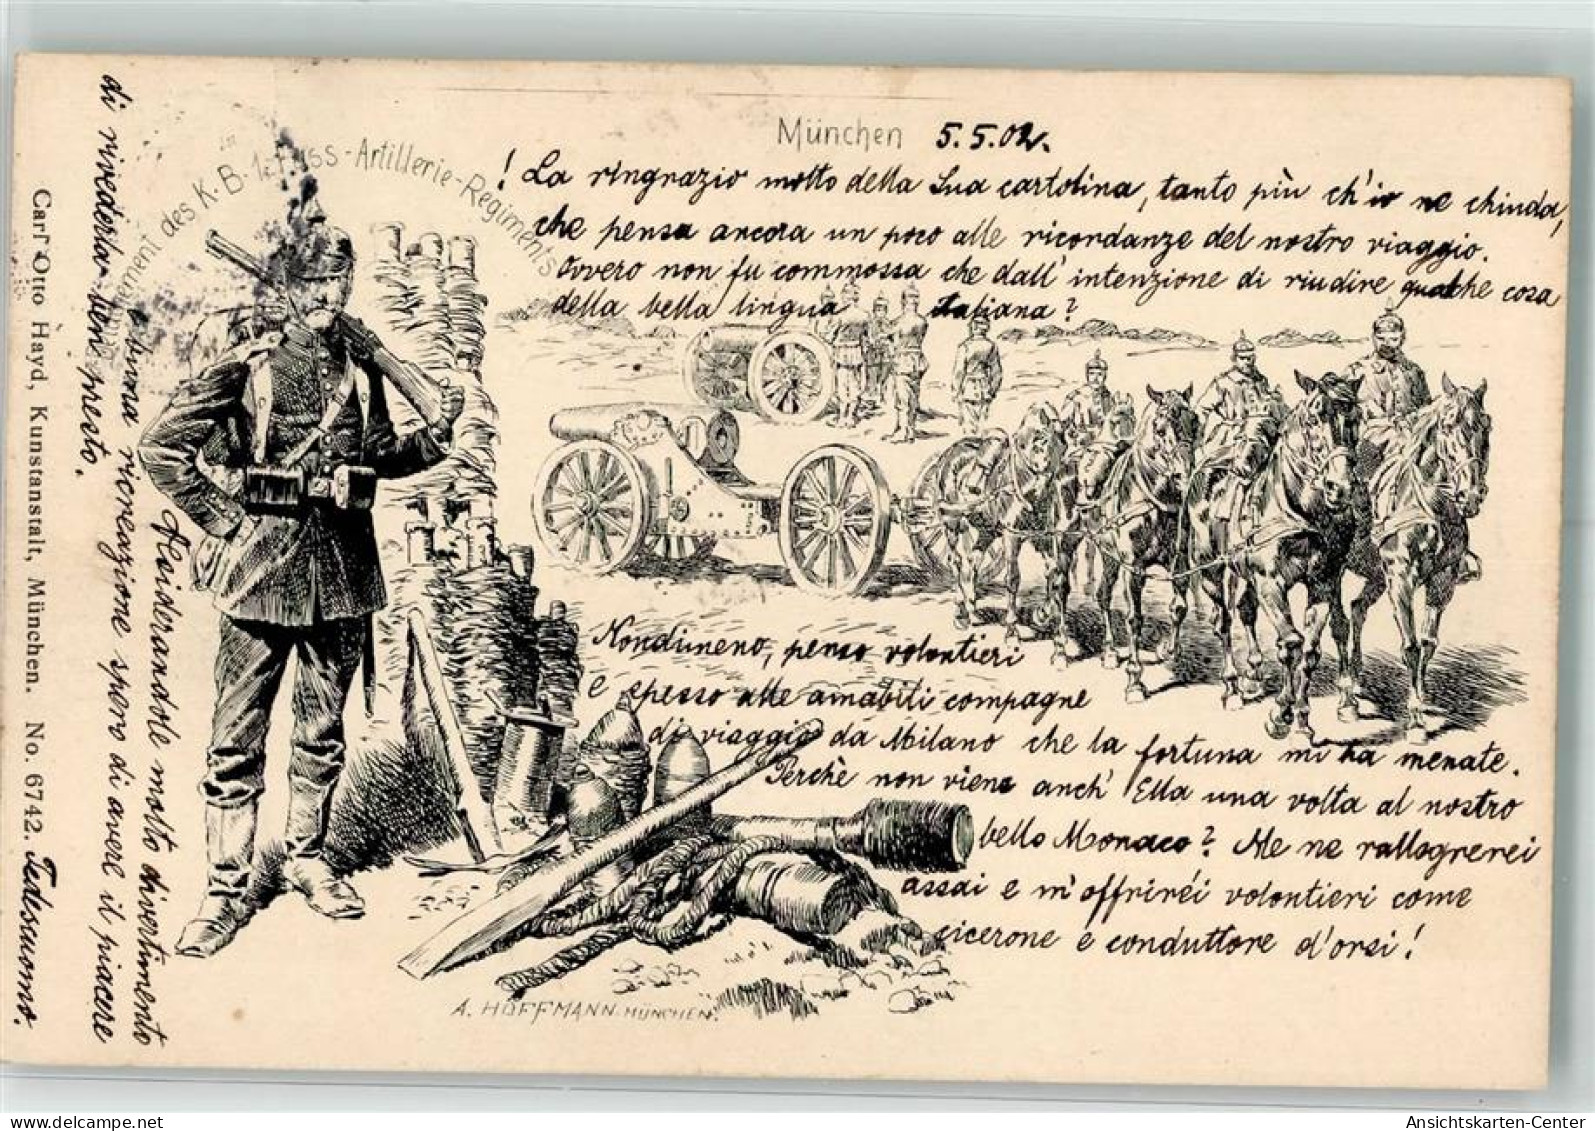 München 5.5.02.
! La ringrazio molto della Sua cartolina, tanto più ch'io ne chiuda,
che pensa ancora un poco alle ricordanze del nostro viaggio.
Ovvero non fu commossa che dall' intenzione di riudire qualche cosa
della bella lingua italiana?
Nondimeno, penso volontieri
e spesso alle amabili compagne
di viaggio da Milano che la fortuna mi ha menate.
Perchè non viene anch' Ella una volta al nostro
bello Monaco? Me ne rallegrerei
assai e m'offriréi volontieri come
cicerone e conduttore d'orsi!
Desiderandole molto divertimento
e buona ricreazione spero di avere il piacere
di rivederla ben presto.
Tedescuomo.
des K. B. 1. Fuss-Artillerie-Regiments
A. HOFFMANN-MÜNCHEN.
Carl Otto Hayd, Kunstanstalt, München. No. 6742.
Ansichtskarten-Center